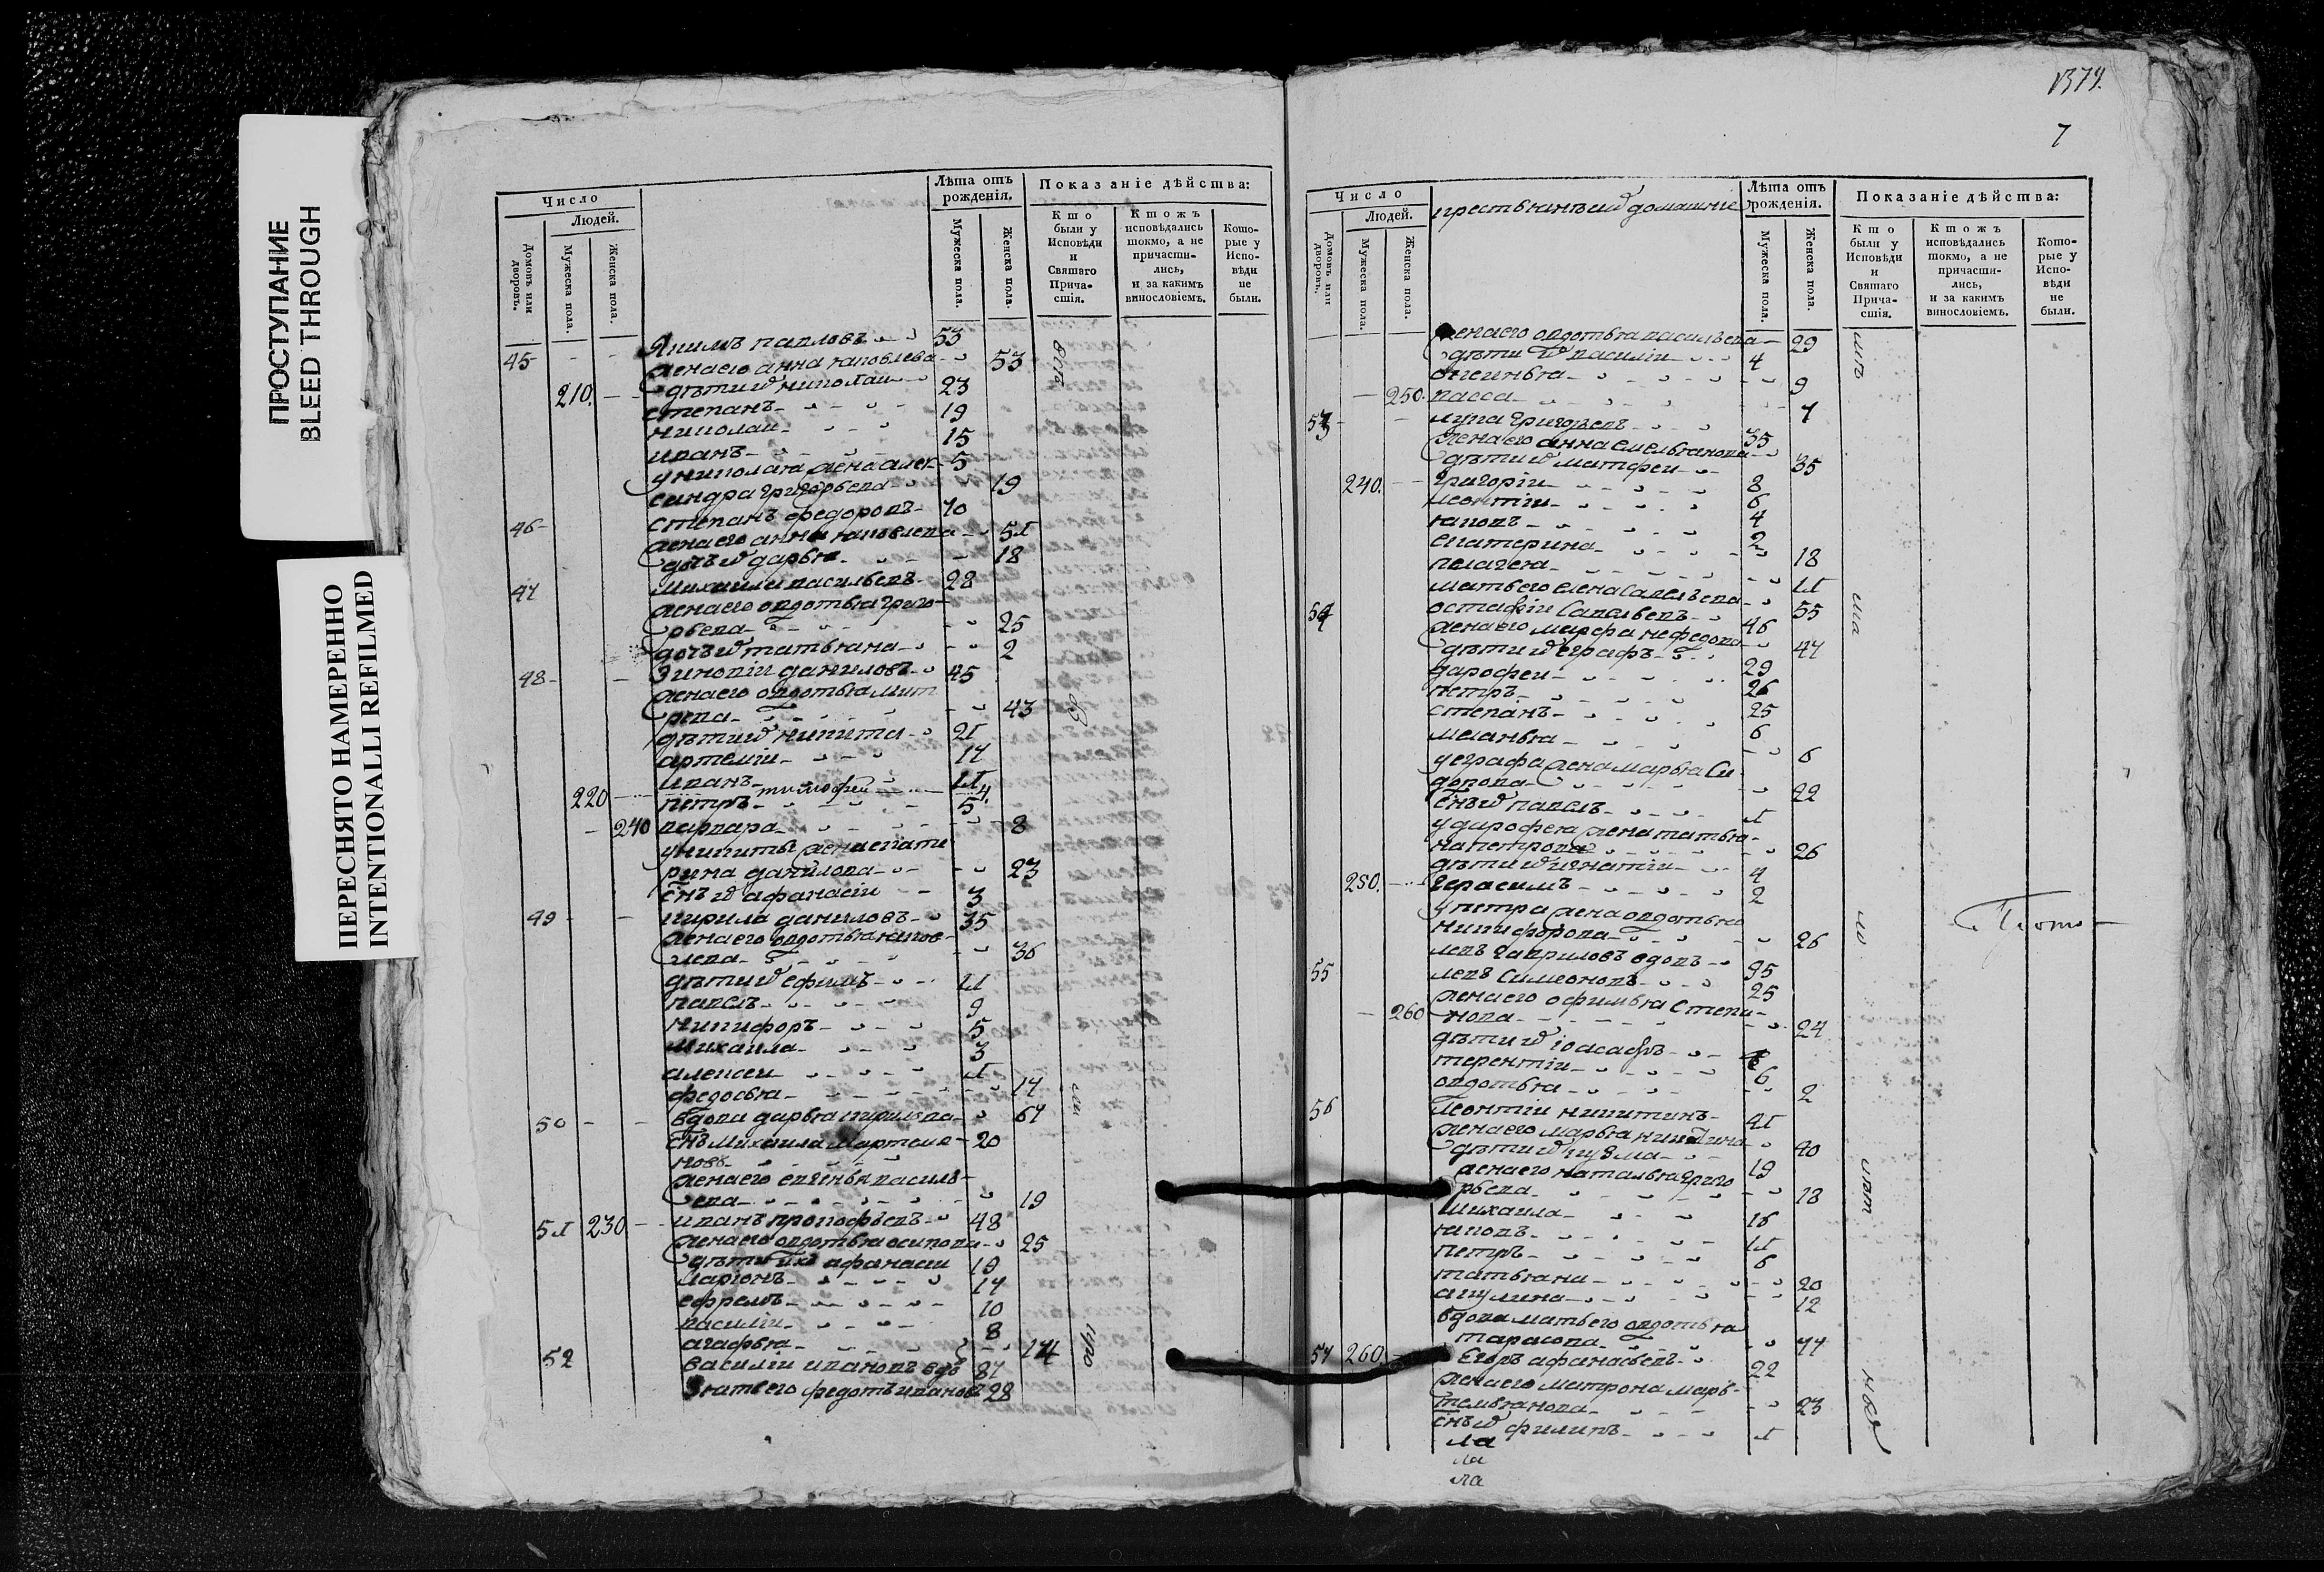 ПРОСТУПАНИЕ
BLEED THROUGH
ПЕРЕСНЯТО НАМЕРЕННО
INTENTIONALLI REFILMED
Число
Людей.
Домовъ или дворовъ.
Мужеска пола.
Женска пола.
Лѣта отъ рожденія.
Мужеска пола.
Женска пола.
Показаніе дѣйства:
Кто были у Исповѣди и Святаго Причастія.
Ктожъ исповѣдались токмо, а не причастились, и за какимъ винословіемъ.
Которые у Исповѣди не были.
Якимъ павловъ 53
45 жена его анна яковлева 53
210. дѣти ихъ николаи 23
степанъ 19
николаи 15
иванъ 5
у николая жена алек
сандра григорьева 19
46 степанъ федоровъ 70
жена его анна яковлева 51
дочь их дарья 18
47 михаила васильевъ 28
жена его овдотья григо
рьева 25
дочь их татьяна 2
48 Зиновіи даниловъ 45
жена его овдотья мит
рева 43
дѣти их никита 21
артеміи 17
иванъ 11
тимофей 4.
220 петръ 5
240 варвара 8
у никиты жена екате
рина данилова 23
снъ их афанасіи 3
49 кирила даниловъ 35
жена его овдотья яков
лева 36
дѣти их ефимъ 11
павелъ 9
никифоръ 5
михаила 3
алексеи 1
федосья 17
50 вдова дарья кирилова 67
снъ михаила мартемя 20
новъ
жена его евгенья василь
ева 19
51 230 иванъ прокофьевъ 48
жена его овдотья осипова 25
дѣти ихъ афанасіи 19
ларіонъ 17
ефремъ 10
василіи 8
агафья 14
52 василіи ивановъ вдъ 87
зять его федотъ ивановъ 28
1374.
7
Число
Людей.
Домовъ или дворовъ.
Мужеска пола.
Женска пола.
крестьяне и их домашніе
Лѣта отъ рожденія.
Мужеска пола.
Женска пола.
Показаніе дѣйства:
Кто были у Исповѣди и Святаго Причастія.
Ктожъ исповѣдались токмо, а не причастились, и за какимъ винословіемъ.
Которые у Исповѣди не были.
жена его овдотья васильева 29
дѣти их василіи 4
9
250. васса 7
53 лука григорьевъ 35
жена его анна емельянова 35
дѣти их матфеи 8
240. григоріи 6
леонтіи 4
яковъ 2
екатерина 18
пелагея 11
мать его елена савельева 55
54 остафіи савельевъ 46
жена его марфа нефедова 47
дѣти их еграфъ 29
дарофеи 26
петръ 25
степанъ 6
меланья 6
у еграфа жена марья си
дорова 22
снъ их павелъ 1
у дарофея жена татья
на петрова 26
дѣти их игнатіи 4
250. герасимъ 2
у петра жена овдотья
никифорова 26
55 левъ гавриловъ вдовъ 95
левъ симеоновъ 25
жена его офимья степа
260 нова 24
дѣти их іоасафъ
терентіи 6
овдотья 2
56 леонтіи никитинъ 41
жена его марья никитина 40
дѣти их кузма 19
жена его наталья григо
рьева 18
михаила 16
яковъ 11
петръ 6
татьяна 20
акулина 12
вдова мать его овдотья
тарасова 77
57 260. Егоръ афанасьевъ 22
жена его матрона марь
темьянова 23
снъ их филипъ 1
ла
ла
ла